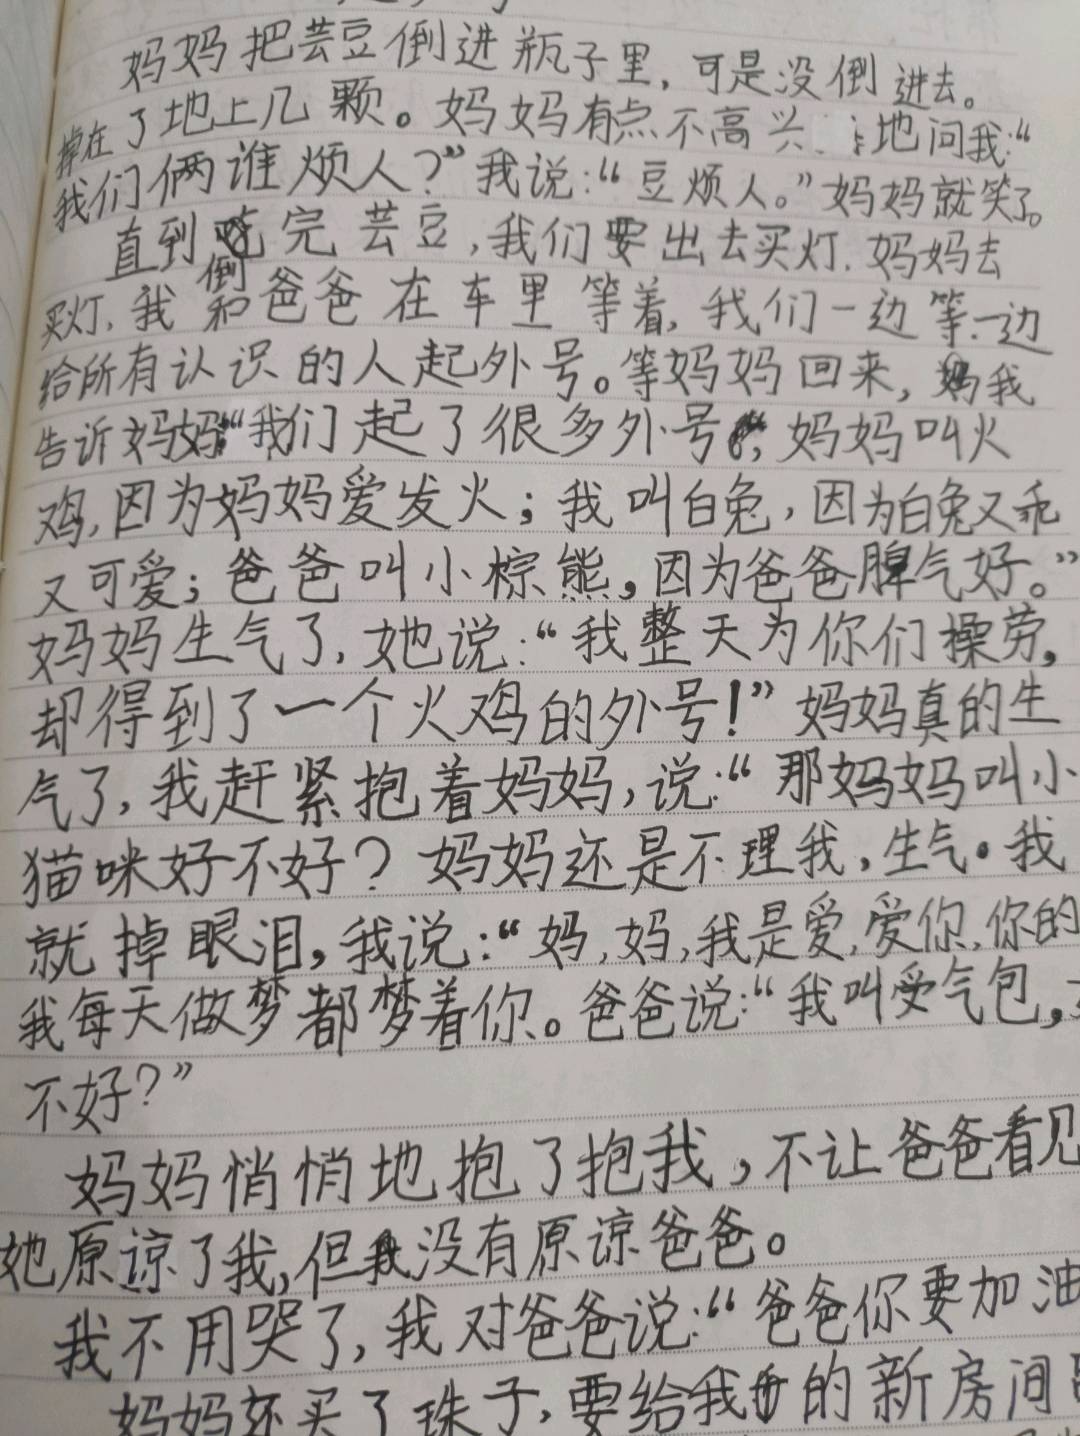 妈妈把芸豆倒进瓶子里，可是没倒进去。
掉在了地上几颗。妈妈有点不高兴 地问我：“
我们俩谁烦人？”我说：“豆烦人。”妈妈就笑了。
直到倒完芸豆，我们要出去买灯．妈妈去
买灯，我和爸爸在车里等着，我们一边等一边
给所有认识的人起外号。等妈妈回来，我
告诉妈妈“我们起了很多外号，妈妈叫火
鸡，因为妈妈爱发火；我叫白兔，因为白兔又乖
又可爱；爸爸叫小棕熊，因为爸爸脾气好。”
妈妈生气了，她说：“我整天为你们操劳，
却得到了一个火鸡的外号！”妈妈真的生
气了，我赶紧抱着妈妈，说：“那妈妈叫小
猫咪好不好？妈妈还是不理我，生气。我
就掉眼泪，我说：“妈，妈，我是爱，爱你，你的
我每天做梦都梦着你。爸爸说：“我叫受气包，
不好？”
妈妈悄悄地抱了抱我，不让爸爸看见
她原谅了我，但没有原谅爸爸。
我不用哭了，我对爸爸说：“爸爸你要加油
妈妈还买了珠子，要给我的新房间